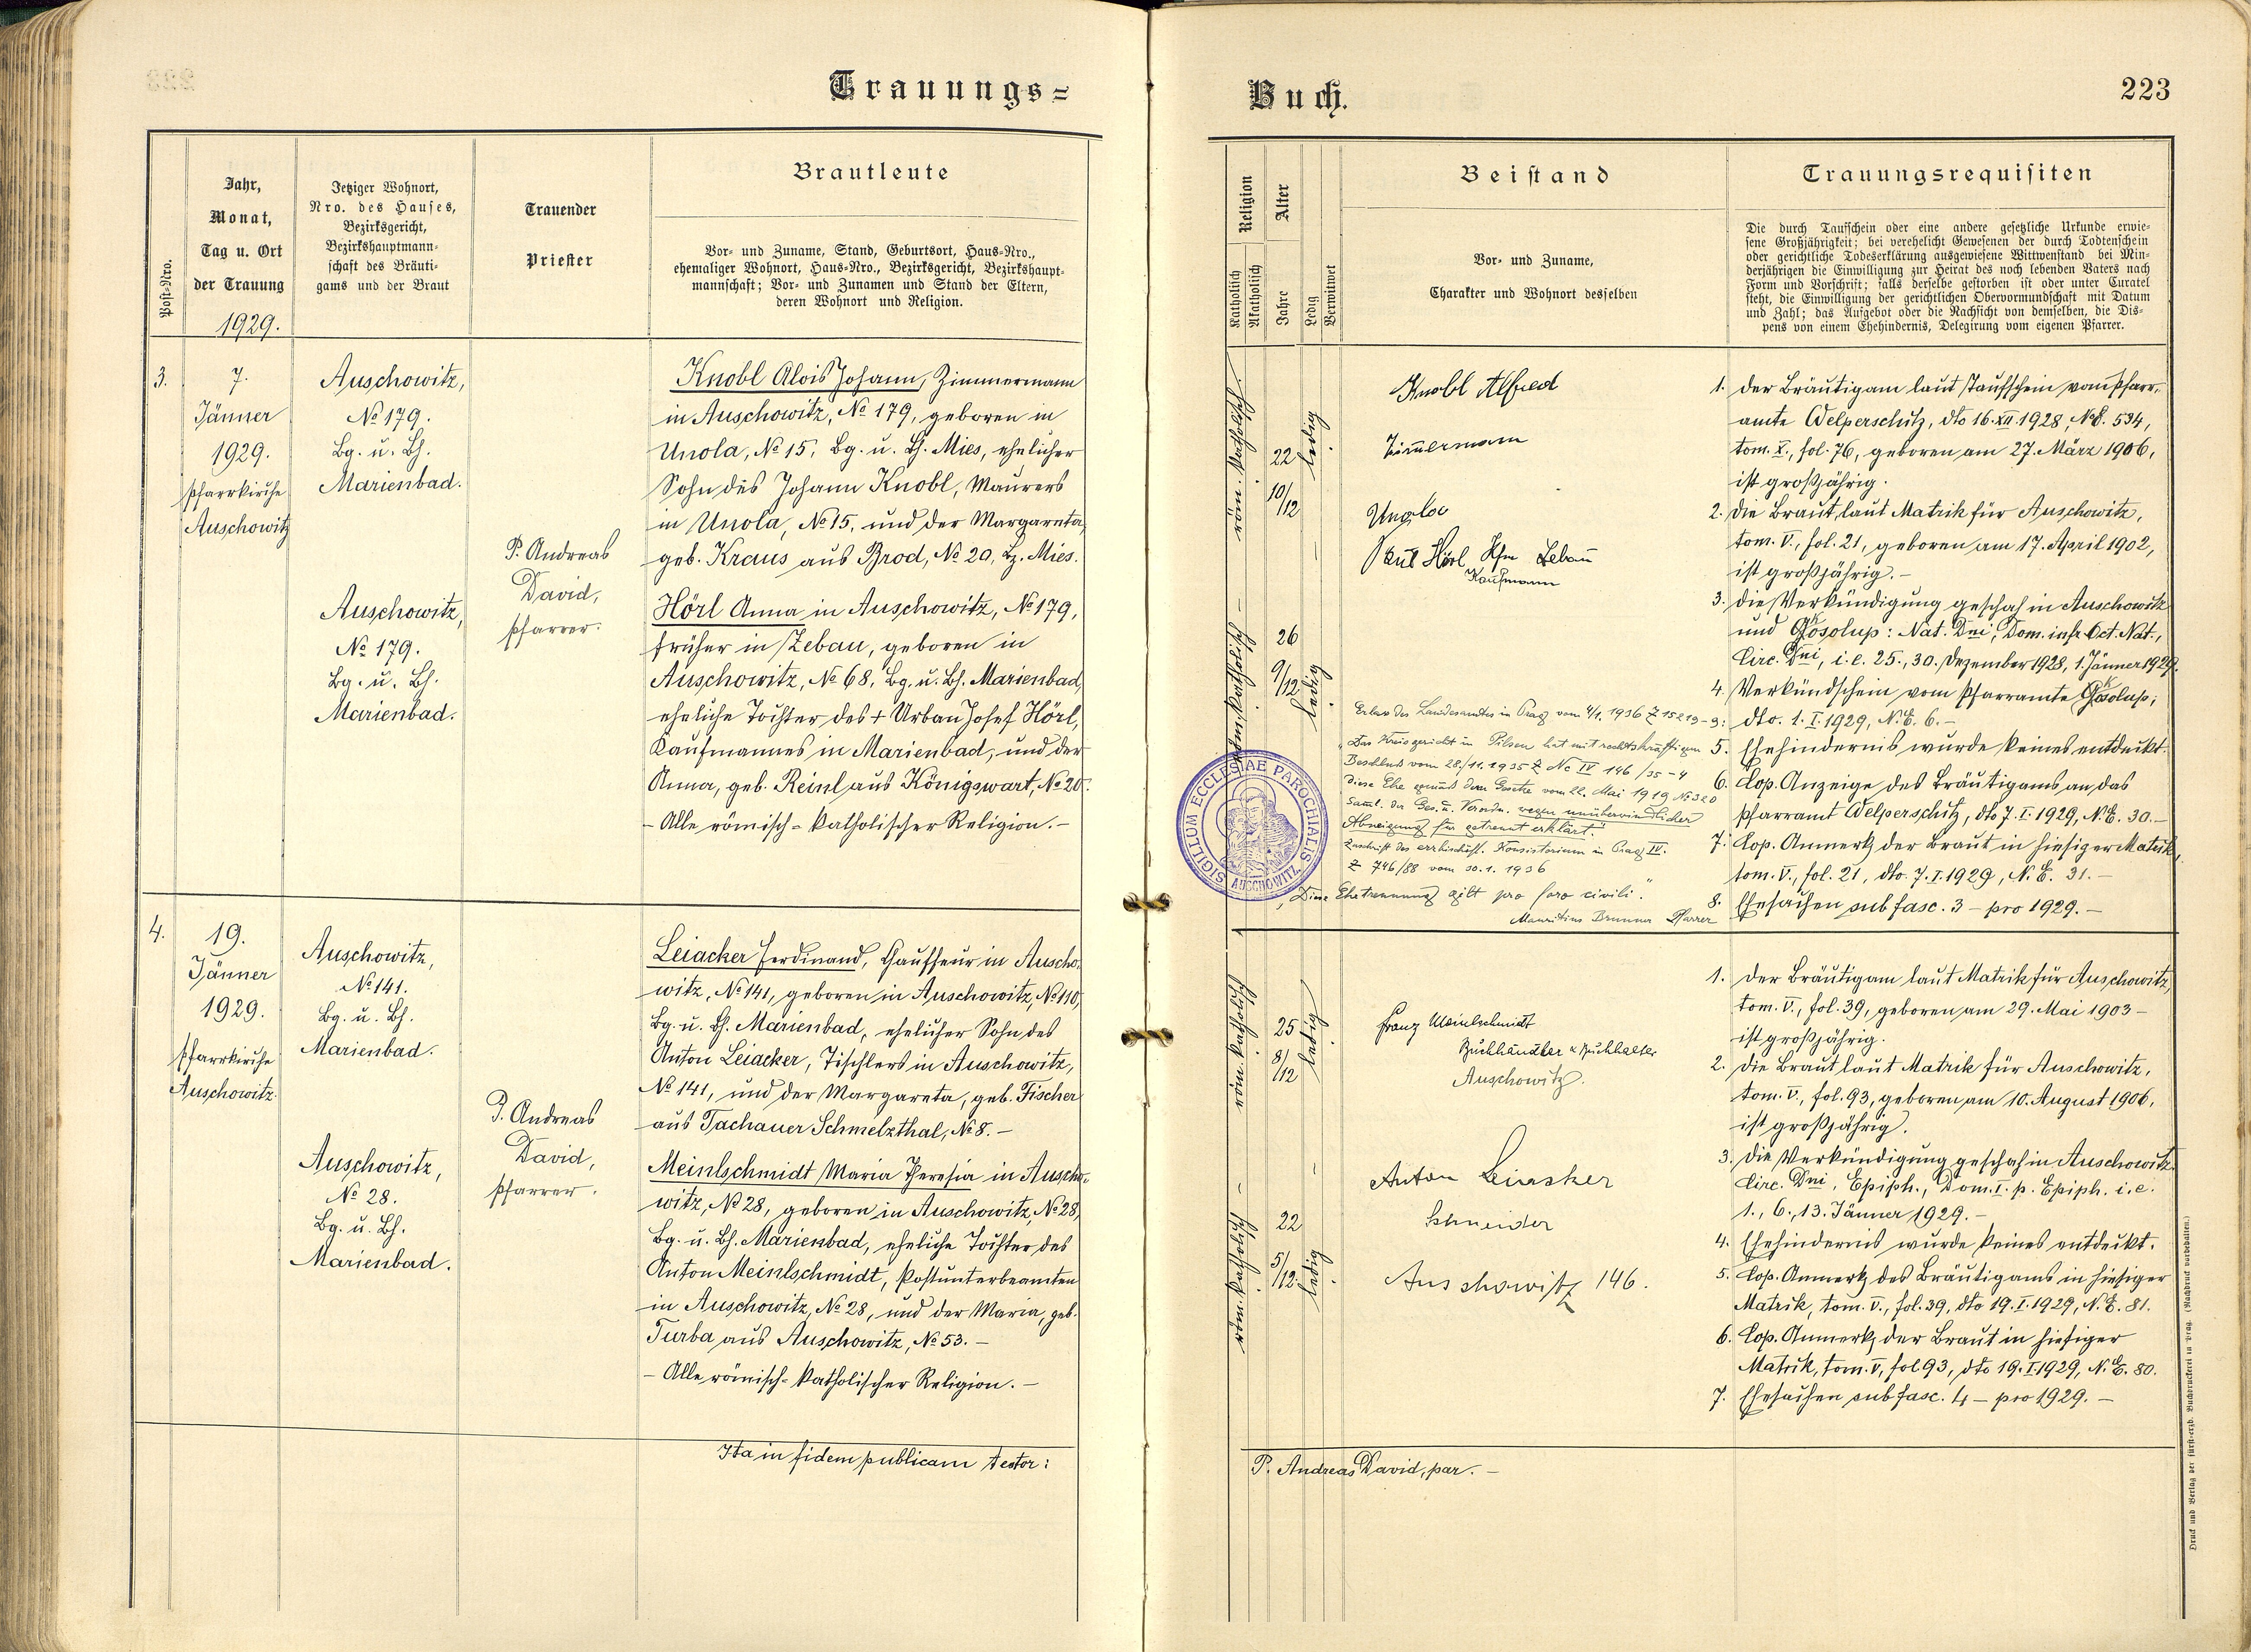 Trauungs=
Jahr,
Monat,
Tag u. Ort
der Trauung
1929.
Post-Nro.
Jetziger Wohnort,
Nro. des Hauses,
Bezirksgericht,
Bezirkshauptmann-
schaft des Bräuti-
gams und der Braut
Trauender
Priester
Brautleute
Vor- und Zuname, Stand, Geburtsort, Haus-Nro.,
ehemaliger Wohnort, Haus-Nro., Bezirksgericht, Bezirkshaupt-
mannschaft; Vor- und Zunamen und Stand der Eltern,
deren Wohnort und Religion.
3.
7.
Jänner
1929.
Pfarrkirche
Auschowitz
Auschowitz,
№ 179.
Bg. u. Bh.
Marienbad.
Auschowitz,
№ 179.
Bg. u. Bh.
Marienbad.
P. Andreas
David,
Pfarrer.
Knobl Alois Johann, Zimmermann
in Auschowitz, № 179, geboren in
Unola, № 15, Bg. u. Bh. Mies, ehelicher
Sohn des Johann Knobl, Maurers
in Unola, № 15, und der Margareta,
geb. Kraus aus Brod, № 20, Bz. Mies.
Hörl Anna in Auschowitz, № 179,
früher in Zebau, geboren in
Auschowitz, № 68, Bg. u. Bh. Marienbad,
eheliche Tochter des + Urban Josef Hörl,
Kaufmannes in Marienbad, und der
Anna, geb. Reinl aus Königswart, № 20.
- Alle römisch-katholischer Religion. -
4.
19.
Jänner
1929.
Pfarrkirche
Auschowitz.
Auschowitz,
№ 141.
Bg. u. Bh.
Marienbad.
Auschowitz,
№ 28.
Bg. u. Bh.
Marienbad.
P. Andreas
David,
Pfarrer.
Leiacker Ferdinand, Chauffeur in Auscho-
witz, № 141, geboren in Auschowitz, № 110,
Bg. u. Bh. Marienbad, ehelicher Sohn des
Anton Leiacker, Tischlers in Auschowitz,
№ 141, und der Margareta, geb. Fischer
aus Tachauer Schmelzthal, № 8. -
Meinlschmidt Maria Theresia in Auscho-
witz, № 28, geboren in Auschowitz, № 28,
Bg. u. Bh. Marienbad, eheliche Tochter des
Anton Meinlschmidt, Postunterbeamten
in Auschowitz, № 28, und der Maria, geb.
Turba aus Auschowitz, № 53. -
- Alle römisch-katholischer Religion. -
Ita in fidem publicam testor:
Buch.
223
Religion
Katholisch
Akatholisch
Alter
Jahre
Ledig
Verwitwet
Beistand
Vor- und Zuname,
Charakter und Wohnort desselben
Trauungsrequisiten
Die durch Taufschein oder eine andere gesetzliche Urkunde erwie-
sene Großjährigkeit; bei verehelicht Gewesenen der durch Todtenschein
oder gerichtliche Todeserklärung ausgewiesene Wittwenstand bei Min-
derjährigen die Einwilligung zur Heirat des noch lebenden Vaters nach
Form und Vorschrift; falls derselbe gestorben ist oder unter Curatel
steht, die Einwilligung der gerichtlichen Obervormundschaft mit Datum
und Zahl; das Aufgebot oder die Nachsicht von demselben, die Dis-
pens von einem Ehehindernis, Delegirung vom eigenen Pfarrer.
röm. katholisch.
22
10/12
ledig
röm. katholisch
26
9/12
ledig
Knobl Alfred
Zimmermann
Paul Hörl Kfm Zebau
Kaufmann
Erlass des Landesamtes in Prag vom 4/1. 1936 Z 15213-9:
"Das Kreisgericht in Pilsen hat mit rechtskräftigem
Beschluß vom 28./11. 1935 Z Nc IV 146/35-4
diese Ehe gemäß dem Gesetze vom 22. Mai 1919 № 320
Saml. der Ges. u. Verordn. wegen unüberwindlicher
Abneigung für getrennt erklärt."
Zuschrift des erzbischöfl. Konsistorium in Prag IV.
Z 746/88 vom 30. 1. 1936
"Diese Ehetrennung gilt pro foro civili."
Mauritius Brunner Pfarrer
SIGILLUM ECCLESIAE PAROCHIALIS AUSCHOWITZ
1. Der Bräutigam laut Taufschein vom Pfarr-
amte Welperschitz, dto 16. XII 1928, N.E. 534,
tom. X., fol. 76, geboren am 27. März 1906,
ist großjährig.
2. Die Braut, laut Matrik für Auschowitz,
tom. V., fol. 21, geboren am 17. April 1902,
ist großjährig. -
3. Die Verkündigung geschah in Auschowitz
und Gosolup: Nat. Dni, Dom. infr. Oct. Nat.,
Circ. Dni, i. e. 25., 30. Dezember 1928, 1. Jänner 1929.
4. Verkündschein vom Pfarramte Gosolup;
dto. 1. I. 1929, N. E. 6. -
5. Ehehindernis wurde keines entdeckt.
6. Cop. Anzeige des Bräutigams an das
Pfarramt Welperschitz, dto 7. I. 1929, N. E. 30. -
7. Cop. Anmerk. der Braut in hiesiger Matrik,
tom. V., fol. 21, dto. 7. I. 1929, N. E. 31. -
8. Ehesachen sub fasc. 3 - pro 1929. -
röm. katholisch
25
8/12
ledig
röm. katholisch
22
5/12
ledig
Franz Meinlschmidt
Buchhändler u Buchhalter
Auschowitz.
Anton Leiacker
Schneider
Auschowitz 146.
1. Der Bräutigam laut Matrik für Auschowitz,
tom. V., fol. 39, geboren am 29. Mai 1903 -
ist großjährig.
2. Die Braut laut Matrik für Auschowitz,
tom. V., fol. 93, geboren am 10. August 1906,
ist großjährig.
3. Die Verkündigung geschah in Auschowitz
Circ. Dni, Epiph., Dom. I. p. Epiph. i. e.
1., 6., 13. Jänner 1929. -
4. Ehehindernis wurde keines entdeckt.
5. Cop. Anmerk. des Bräutigams in hiesiger
Matrik, tom. V., fol. 39, dto 19. I. 1929, N. E. 81.
6. Cop. Anmerk. der Braut in hiesiger
Matrik, tom. V, fol 93, dto 19. I. 1929, N. E. 80.
7. Ehesachen sub fasc. 4 - pro 1929. -
P. Andreas David, par. -
Druck und Verlag der fürst-erzb. Buchdruckerei in Prag. (Nachdruck vorbehalten.)